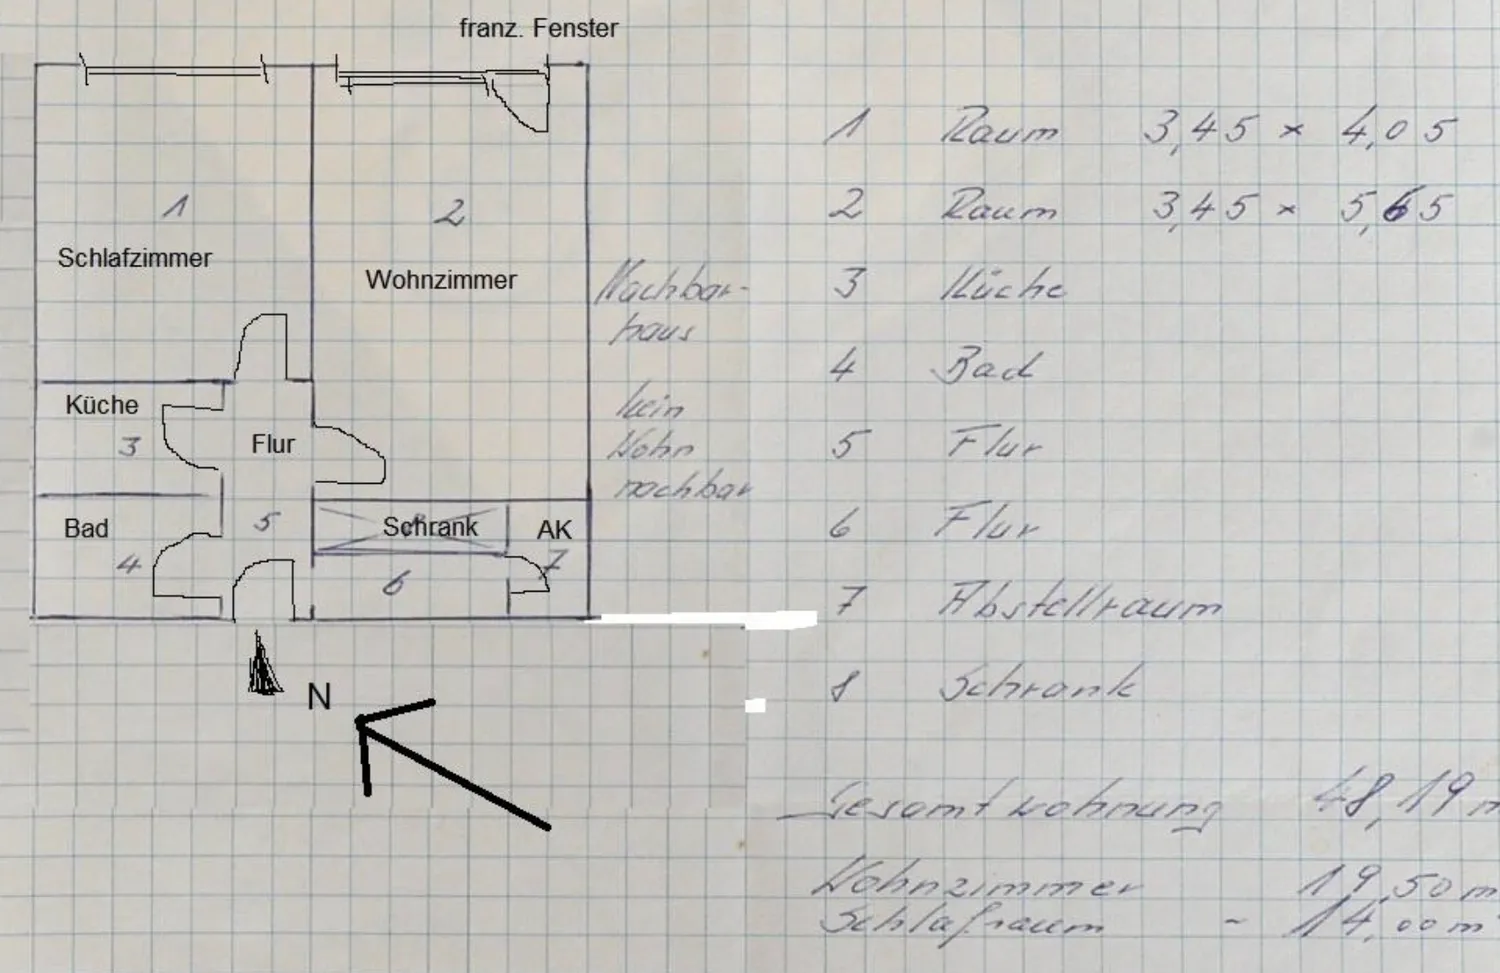 franz. Fenster
1
Schlafzimmer
2
Wohnzimmer
Nachbar-
haus
kein
Wohn
nachbar
Küche
3
Flur
5
Bad
4
Schrank
6
AK
7
N
1 Raum 3,45 x 4,05
2 Raum 3,45 x 5,65
3 Küche
4 Bad
5 Flur
6 Flur
7 Abstellraum
8 Schrank
Gesamtwohnung 48,19 m
Wohnzimmer 19,50 m
Schlafraum ~ 14,00 m